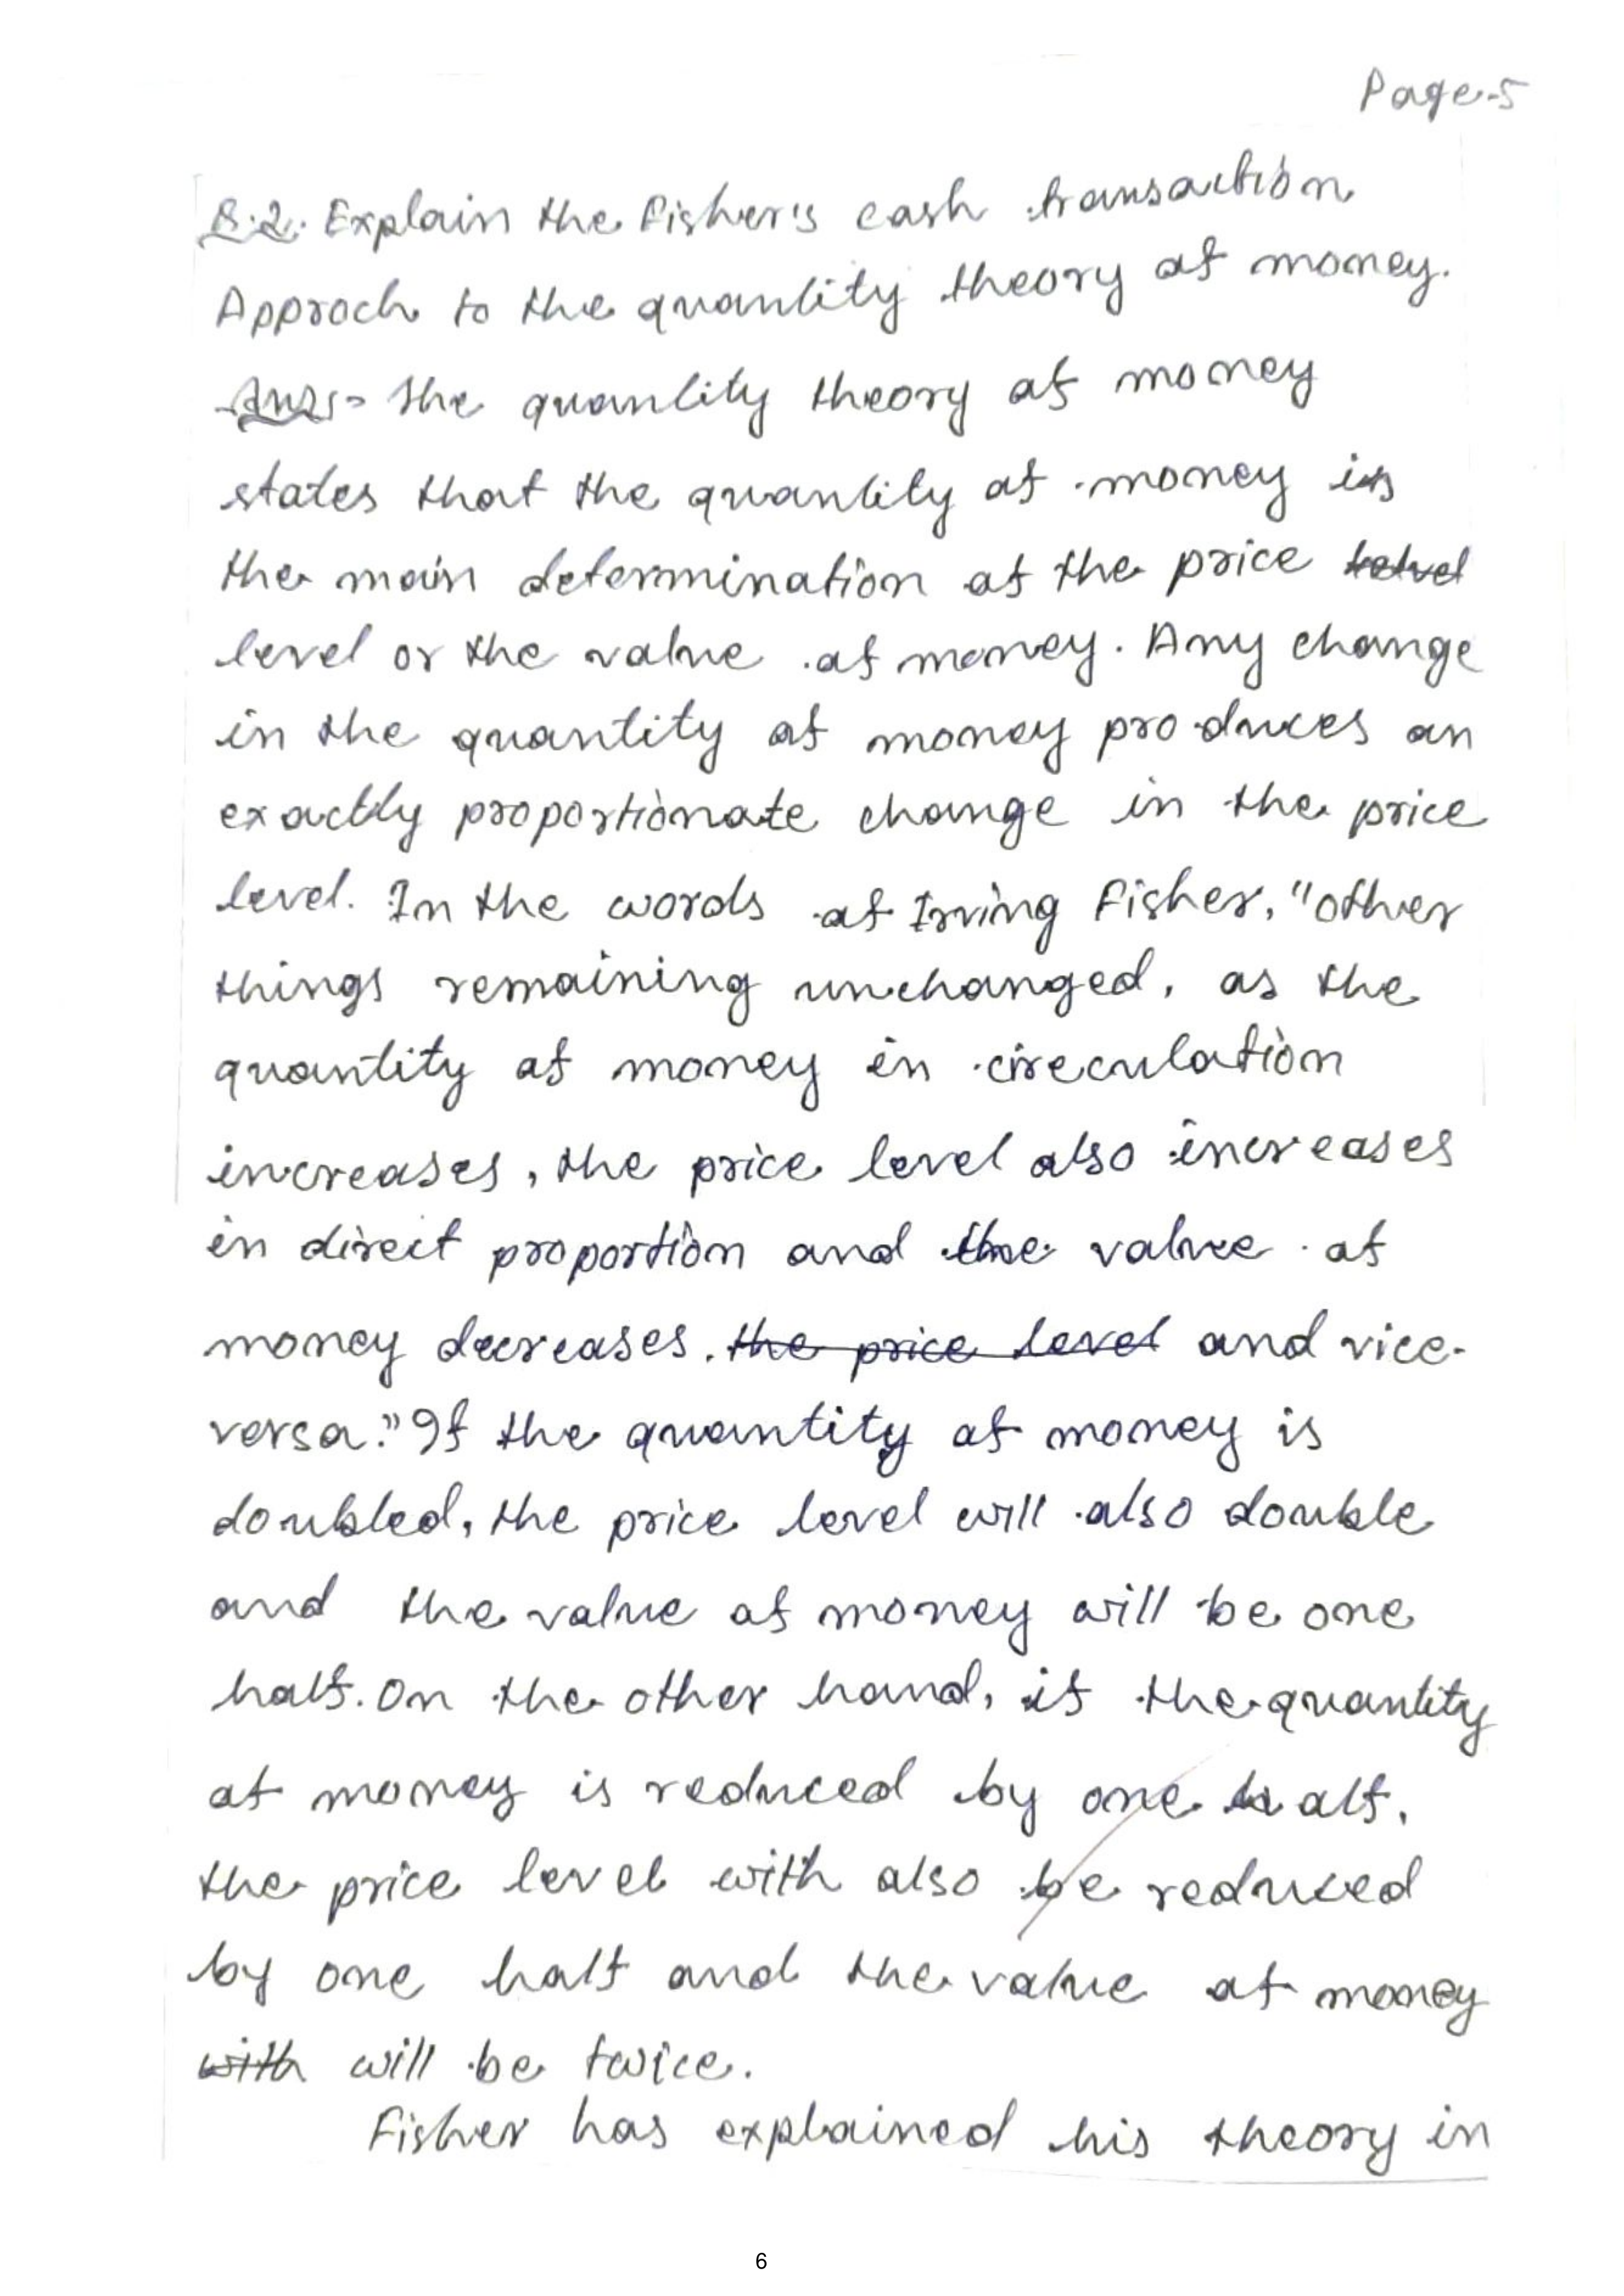 Page-5
Q.2. Explain the Fisher's cash transaction
Approch to the quantity theory of money.
Ans:- The quantity theory of money
states that the quantity of money is
the main determination of the price
level or the value of money. Any change
in the quantity of money produces an
exactly proportionate change in the price
level. In the words of Irving Fisher, "other
things remaining unchanged, as the
quantity of money in cireculation
increases, the price level also increases
in direct proportion and the value of
money decreases. the price level and vice-
versa." If the quantity of money is
doubled, the price level will also double
and the value of money will be one
half. On the other hand, if the quantity
of money is reduced by one half,
the price level with also be reduced
by one half and the value of money
with will be twice.
Fisher has explained his theory in
6